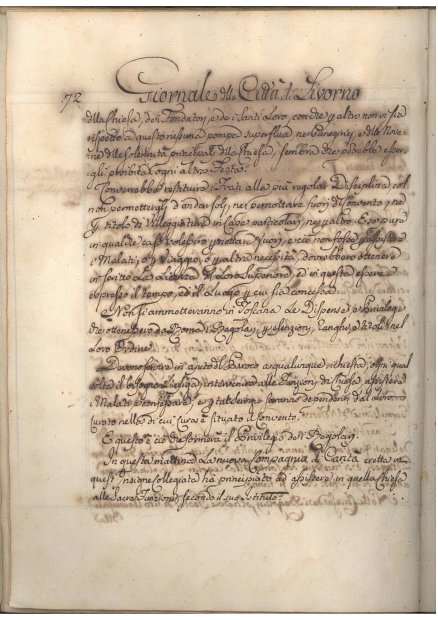 72 Giornale della Città di Livorno
della Chiesa, dei Fondatori, e dei Santi Loro, con che p altro non si fia
rispetto a questi nessuna pompa superflua, ne Panegirici, e delle Nove-
ne delle Solennità principali della Chiesa, sembra che potrebbe esser-
gli proibita ogni altra Festa.
Converrebbe restituire i Frati alla più regolar Disciplina col
non permettergli d'andar soli, ne pernottare fuori di Convento, ne
p titolo di Villeggiatura in Case particolari, ne p altro. E se pure
in qualche caso volessero pernottar fuori, e ciò non fosse p assistere
i Malati, o p Viaggio, o p altra necessità, dovrebbero ottenere
in scritto La Licenza de Loro Superiori, ed in questa essere
espresso il tempo, ed il Luogo p cui fia concessa.
Non si ammetteranno in Toscana Le Dispense e Privilegi
che ottenessero da Roma i Regolari, p esenzioni, Ranghi, e Titoli nel
Loro Ordine.
Devono essere in ajuto il Parroco a qualunque richiesta, ogni qual
volta il bisogno L'esiga, intervenire alle Funzioni di Chiesa, assistere
i Malati, e confessare, e p tale effetto saranno dipendenti dal
Curato nella di cui Cura è situato il Convento.
E questo è ciò che formava il Privilegio de Regolari.
In questa mattina La nuova Compagnia di Carità eretta in
quest' Insigne Collegiata ha principiato ad assistere in quella Chiesa
alle Sacre Funzioni, secondo il suo Istituto.